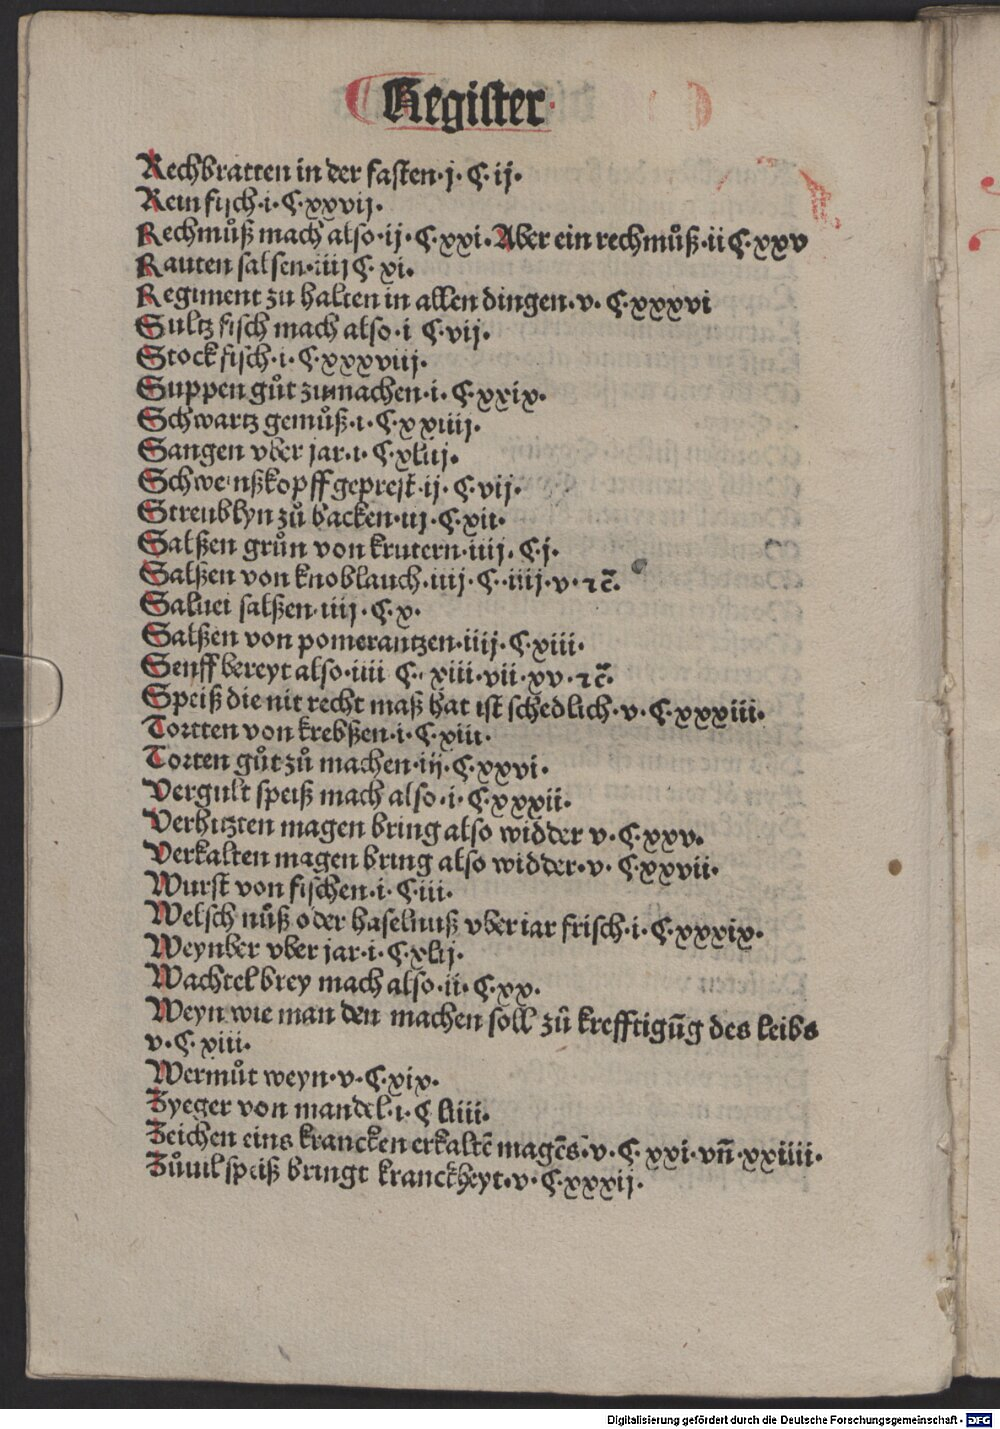 Register
Rechbratten in der fasten·j·C·ij·
Rein fisch·i·C·xxvij·
Rechmůß mach also·ij·C·xxi·Aber ein rechmůß·ii C·xxv
Rauten salsen·iiij C·xi·
Regiment zu halten in allen dingen·v·C·xxxvi
Sultz fisch mach also·i C·vij·
Stockfisch·i·C·xxxviij·
Suppen gůt zumachen·i·C·xxix·
Schwartz gemůß·i·C·xxiiij·
Sangen vber jar·i·C·xliij·
Schweinßkopff geprest·ij·C·vij·
Streublyn zů backen·iij·C·xii·
Salßen grůn von krutern·iiij·C·j·
Salßen von knoblauch·iiij·C·iiij·v·⁊c̄·
Saluei salßen·iiij·C·x·
Salßen von pomerantzen·iiij·C·xiii·
Senff bereyt also·iiii C·xiii·vii·xv·⁊c̄·
Speiß die nit recht maß hat ist schedlich·v·C·xxxiii·
Tortten von krebßen·i·C·xiii·
Torten gůt zů machen·iij·C·xxvi·
Vergult speiß mach also·i·C·xxxii·
Verhitzten magen bring also widder v·C·xxv·
Verkalten magen bring also widder·v·C·xxvii·
Wurst von fischen·i·C·iii·
Welsch nůß oder haselnuß vber iar frisch·i·C·xxxix·
Weynber vber jar·i·C·xlij·
Wachtel brey mach also·ii·C·xx·
Weyn wie man den machen soll zů krefftigūg des leibs
v·C·xiii·
Wermůt weyn·v·C·xix·
Zyeger von mandel·i·C liiii·
Zeichen eins krancken erkaltē magēs·v·C·xxi·vn̄·xxiiii·
Zůuil speiß bringt kranckheyt·v·C·xxxij·
Digitalisierung gefördert durch die Deutsche Forschungsgemeinschaft - DFG